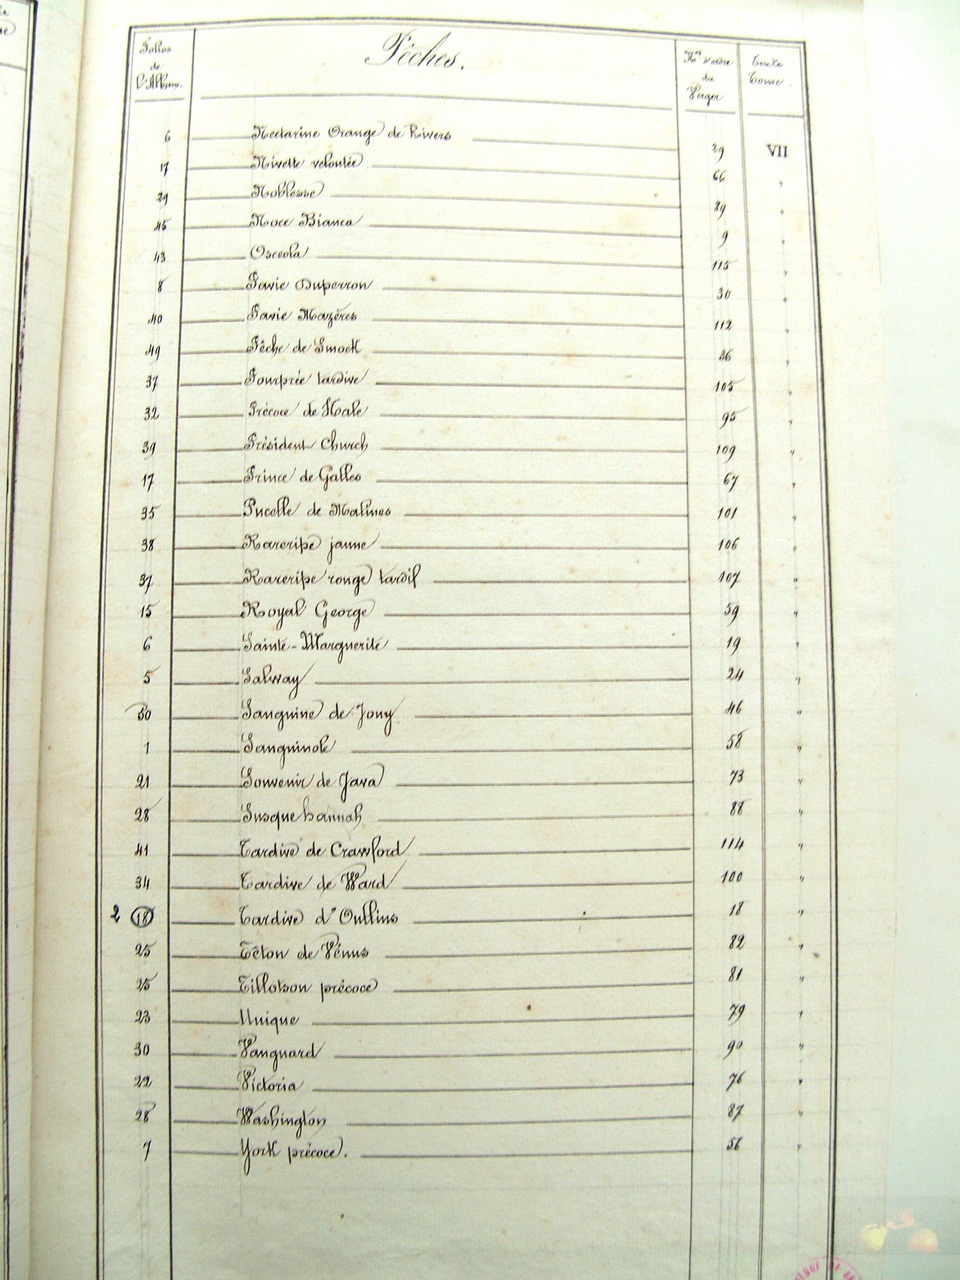 Folios de l'Album. Pêches. Nos d'ordre du Verger Texte Tome.
6 Nectarine Orange de Rivers 29 VII
17 Nivette veloutée 66 "
29 Noblesse 89 "
45 Noce Bianca 9 "
43 Osceola 115 "
8 Pavie Duperron 30 "
40 Pavie Mazères 112 "
49 Pêche de Smock 36 "
37 Pourprée tardive 105 "
32 Précoce de Hale 95 "
39 Président Church 109 "
17 Prince de Galles 67 "
35 Pucelle de Malines 101 "
38 Rareripe jaune 106 "
37 Rareripe rouge tardif 107 "
15 Royal George 59 "
6 Sainte-Marguerite 19 "
5 Salway 24 "
30 Sanguine de Jouy 46 "
1 Sanguinole 58 "
21 Souvenir de Java 73 "
28 Susquehannah 88 "
41 Tardive de Crawford 114 "
34 Tardive de Ward 100 "
2 18 Tardive d'Oullins 18 "
25 Téton de Vénus 82 "
25 Tillotson précoce 81 "
23 Unique 79 "
30 Vanguard 90 "
22 Victoria 76 "
28 Washington 87 "
7 York précoce. 56 "